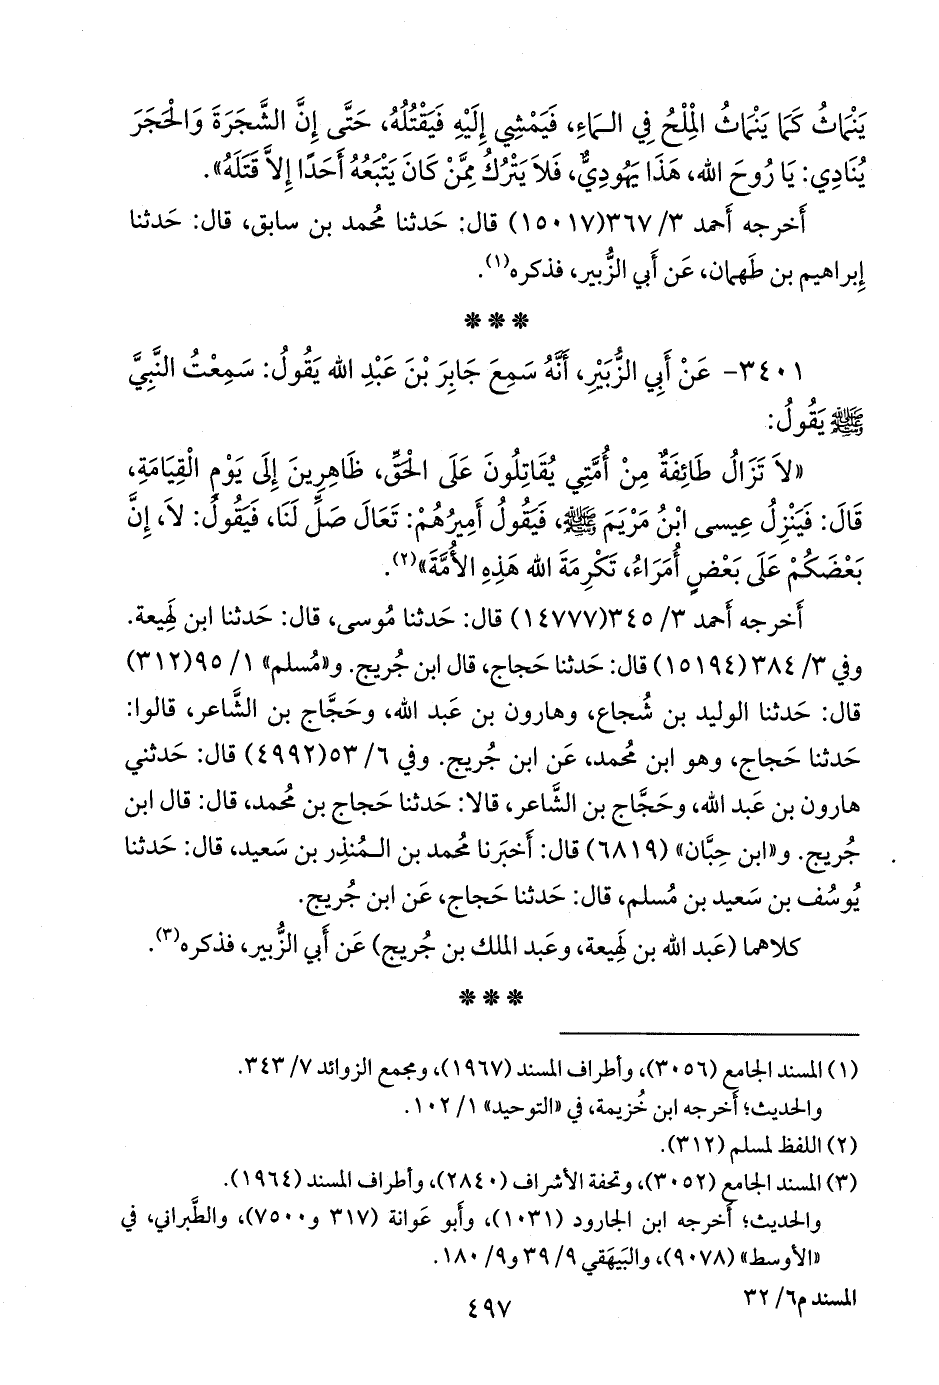 يَنْمَاثُ كَمَا يَنْمَاثُ الْمِلْحُ فِي الـمَاءِ، فَيَمْشِي إِلَيْهِ فَيَقْتُلُهُ، حَتَّى إِنَّ الشَّجَرَةَ وَالْحَجَرَ
يُنَادِي: يَا رُوحَ الله، هَذَا يَهُودِيٌّ، فَلاَ يَتْرُكُ مِمَّنْ كَانَ يَتْبَعُهُ أَحَدًا إِلاَّ قَتَلَهُ».
أَخرجه أَحمد ٣/ ٣٦٧(١٥٠١٧) قال: حَدثنا مُحمد بن سابق، قال: حَدثنا
إِبراهيم بن طَهمان، عَن أَبي الزُّبير، فذكره(١).
***
٣٤٠١- عَنْ أَبِي الزُّبَيْرِ، أَنَّهُ سَمِعَ جَابِرَ بْنَ عَبْدِ الله يَقُولُ: سَمِعْتُ النَّبِيَّ
ﷺ يَقُولُ:
«لاَ تَزَالُ طَائِفَةٌ مِنْ أُمَّتِي يُقَاتِلُونَ عَلَى الْحَقِّ، ظَاهِرِينَ إِلَى يَوْمِ الْقِيَامَةِ،
قَالَ: فَيَنْزِلُ عِيسى ابْنُ مَرْيَمَ ﷺ، فَيَقُولُ أَمِيرُهُمْ: تَعَالَ صَلِّ لَنَا، فَيَقُولُ: لاَ، إِنَّ
بَعْضَكُمْ عَلَى بَعْضٍ أُمَرَاءُ، تَكْرِمَةَ الله هَذِهِ الأُمَّةَ»(٢).
أَخرجه أَحمد ٣/ ٣٤٥(١٤٧٧٧) قال: حَدثنا مُوسى، قال: حَدثنا ابن لَهِيعة.
وفي ٣/ ٣٨٤(١٥١٩٤) قال: حَدثنا حَجاج، قال ابن جُريج. و«مُسلم» ١/ ٩٥(٣١٢)
قال: حَدثنا الوليد بن شُجاع، وهارون بن عَبد الله، وحَجَّاج بن الشَّاعر، قالوا:
حَدثنا حَجاج، وهو ابن مُحمد، عَن ابن جُريج. وفي ٦/ ٥٣(٤٩٩٢) قال: حَدثني
هارون بن عَبد الله، وحَجَّاج بن الشَّاعر، قالا: حَدثنا حَجاج بن مُحمد، قال: قال ابن
جُريج. و«ابن حِبَّان» (٦٨١٩) قال: أَخبَرنا مُحمد بن الـمُنذِر بن سَعيد، قال: حَدثنا
يُوسُف بن سَعيد بن مُسلم، قال: حَدثنا حَجاج، عَن ابن جُريج.
كلاهما (عَبد الله بن لَهِيعة، وعَبد الملك بن جُريج) عَن أَبي الزُّبير، فذكره(٣).
***
(١) المسند الجامع (٣٠٥٦)، وأطراف المسند (١٩٦٧)، ومجمع الزوائد ٧/ ٣٤٣.
والحديث؛ أَخرجه ابن خُزيمة، في «التوحيد» ١/ ١٠٢.
(٢) اللفظ لمسلم (٣١٢).
(٣) المسند الجامع (٣٠٥٢)، وتحفة الأشراف (٢٨٤٠)، وأطراف المسند (١٩٦٤).
والحديث؛ أَخرجه ابن الجارود (١٠٣١)، وأَبو عَوانة (٣١٧ و٧٥٠٠)، والطَّبراني، في
«الأوسط» (٩٠٧٨)، والبَيهَقي ٩/ ٣٩ و٩/ ١٨٠.
المسند م٦/ ٣٢
٤٩٧